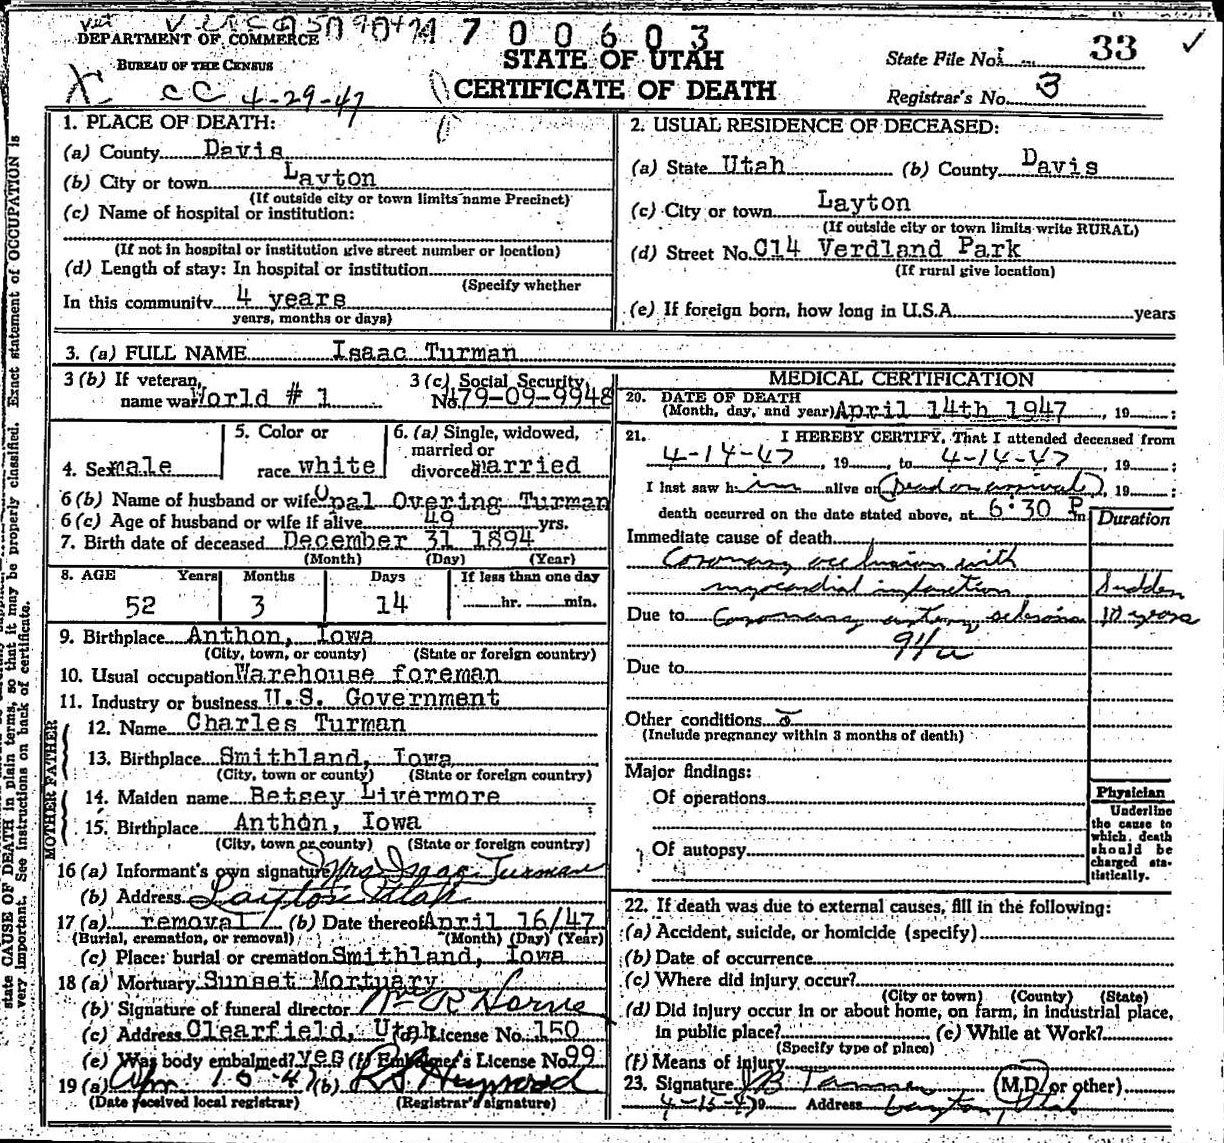 700603
DEPARTMENT OF COMMERCE
BUREAU OF THE CENSUS
CC 4-29-47
STATE OF UTAH
CERTIFICATE OF DEATH
State File No. 33
Registrar's No. 3
state CAUSE OF DEATH in plain terms, so that it may be properly classified. Exact statement of OCCUPATION is
very important. See instructions on back of certificate.
1. PLACE OF DEATH:
(a) County Davis
(b) City or town Layton
(If outside city or town limits name Precinct)
(c) Name of hospital or institution:
(If not in hospital or institution give street number or location)
(d) Length of stay: In hospital or institution
(Specify whether
In this community 4 years
years, months or days)
2. USUAL RESIDENCE OF DECEASED:
(a) State Utah (b) County Davis
(c) City or town Layton
(If outside city or town limits write RURAL)
(d) Street No. C14 Verdland Park
(If rural give location)
(e) If foreign born, how long in U.S.A. years
3. (a) FULL NAME Isaac Turman
3 (b) If veteran, name war World # 1
3 (c) Social Security No. 479-09-9948
4. Sex male
5. Color or race white
6. (a) Single, widowed, married or divorced married
6 (b) Name of husband or wife Opal Overing Turman
6 (c) Age of husband or wife if alive 49 yrs.
7. Birth date of deceased December 31 1894
(Month) (Day) (Year)
8. AGE Years Months Days If less than one day
52 3 14 hr. min.
9. Birthplace Anthon, Iowa
(City, town, or county) (State or foreign country)
10. Usual occupation Warehouse foreman
11. Industry or business U.S. Government
FATHER
12. Name Charles Turman
13. Birthplace Smithland, Iowa
(City, town or county) (State or foreign country)
MOTHER
14. Maiden name Betsey Livermore
15. Birthplace Anthon, Iowa
(City, town or county) (State or foreign country)
16 (a) Informant's own signature Mrs Isaac Turman
(b) Address Layton Utah
17 (a) removal (b) Date thereof April 16/47
(Burial, cremation, or removal) (Month) (Day) (Year)
(c) Place: burial or cremation Smithland, Iowa
18 (a) Mortuary Sunset Mortuary
(b) Signature of funeral director Wm R Horne
(c) Address Clearfield, Utah (d) License No. 150
(e) Was body embalmed? yes (f) Embalmer's License No. 99
19 (a) (b)
(Date received local registrar) (Registrar's signature)
MEDICAL CERTIFICATION
20. DATE OF DEATH
(Month, day, and year) April 14th 1947, 19 ;
21. I HEREBY CERTIFY, That I attended deceased from
4-14-47, 19 , to 4-14-47, 19 ;
I last saw him alive on (Dead on arrival), 19 ;
death occurred on the date stated above, at 6:30 P m
Duration
Immediate cause of death
Coronary occlusion with
myocardial infarction Sudden
Due to Coronary artery sclerosis 10 years
94a
Due to
Other conditions 0
(Include pregnancy within 3 months of death)
Major findings:
Of operations
Of autopsy
Physician
Underline
the cause to
which death
should be
charged sta-
tistically.
22. If death was due to external causes, fill in the following:
(a) Accident, suicide, or homicide (specify)
(b) Date of occurrence
(c) Where did injury occur?
(City or town) (County) (State)
(d) Did injury occur in or about home, on farm, in industrial place,
in public place? (e) While at Work?
(Specify type of place)
(f) Means of injury
23. Signature (M.D. or other)
4-15-47 Address Layton, Utah